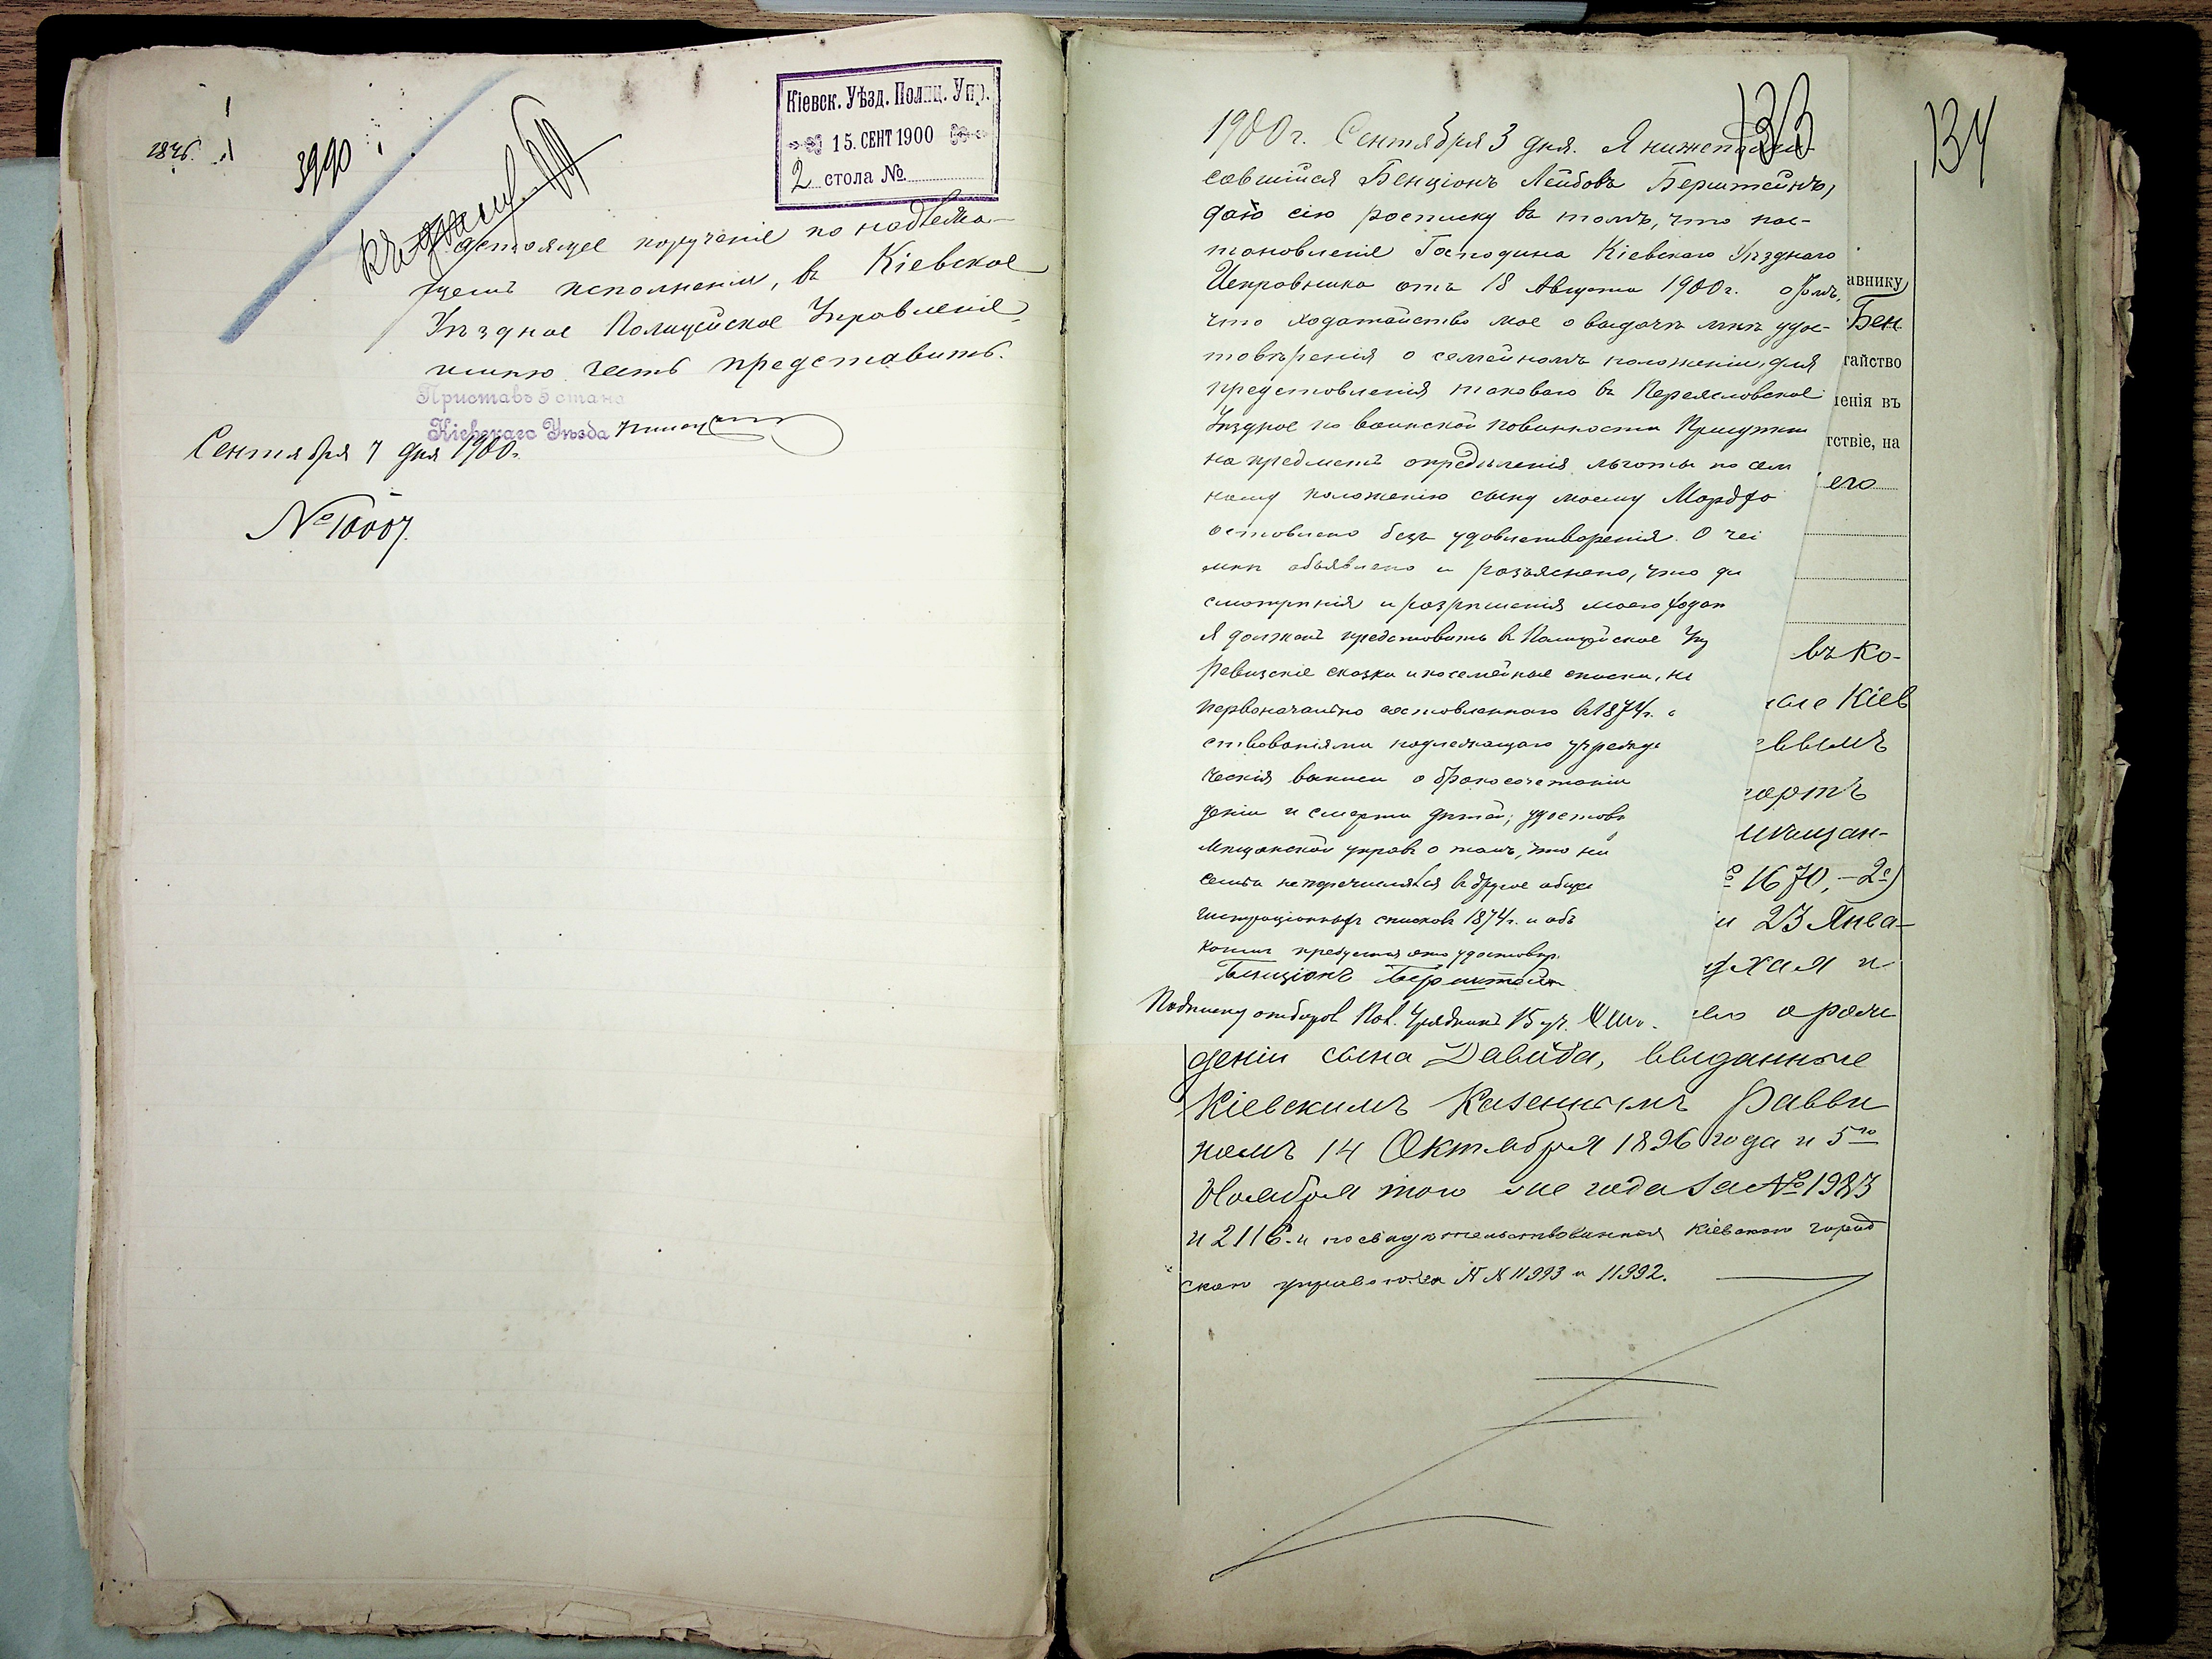 1826.
3990
Кіевск. Уѣзд. Полиц. Упр.
15. СЕНТ 1900
2 стола №
Къ
Настоящее порученіе по надлежа-
щемъ исполненіи, въ Кіевское
Уѣздное Полицейское Управленіе
имѣю честь представить.
Приставъ 5 стана
Кіевскаго Уѣзда
Сентября 7 дня 1900 г.
№ 10007.
133
1900 г. Сентября 3 дня. Я нижеподпи-
савшійся Бенціонъ Лейбовъ Берштейнъ,
даю сію росписку въ томъ, что пос-
тановленіе Господина Кіевскаго Уѣзднаго
Исправника отъ 18 Августа 1900 г. о томъ,
что ходатайство мое о выдачѣ мнѣ удос-
товѣренія о семейномъ положеніи, для
представленія таковаго въ Переяславское
Уѣздное по воинской повинности Присутств
на предметъ опредѣленія льготы по сем
ному положенію сыну моему Мордхо
оставлено безъ удовлетворенія. О че
мнѣ объявлено и разъяснено, что д
смотрѣнія и разрѣшенія моего ходат
я долженъ представить въ Полицейское Уп
Ревизскіе сказки и посемейные списки, н
первоначально составленнаго въ 1874 г. с
ствованіями подлежащаго учрежд
ческія выписи о бракосочетаніи
деніи и смерти дѣтей; удостов
Мѣщанской управѣ о томъ, что н
семья не перечислялся въ другое обще
гистраціонныхъ списковъ 1874 г. и объ
копіи удостовѣр.
Бенціонъ Берштейн
Подписку отбиралъ Пол. Урядникъ 15 уч.
134
авнику
Бен
тайство
ленія въ
тствіе, на
его
въ ко-
Кіев
евымъ
портъ
мѣщан-
№ 1670, - 2)
и 23 Янва-
о рож
деніи сына Давида, выданные
Кіевскимъ Казеннымъ Равви
номъ 14 Октября 1896 года и 5го
Ноября того же года за № 1983
и 2116 и посвидѣтельствованныя Кіевскою город
скою управою за № № 11993 и 11992.